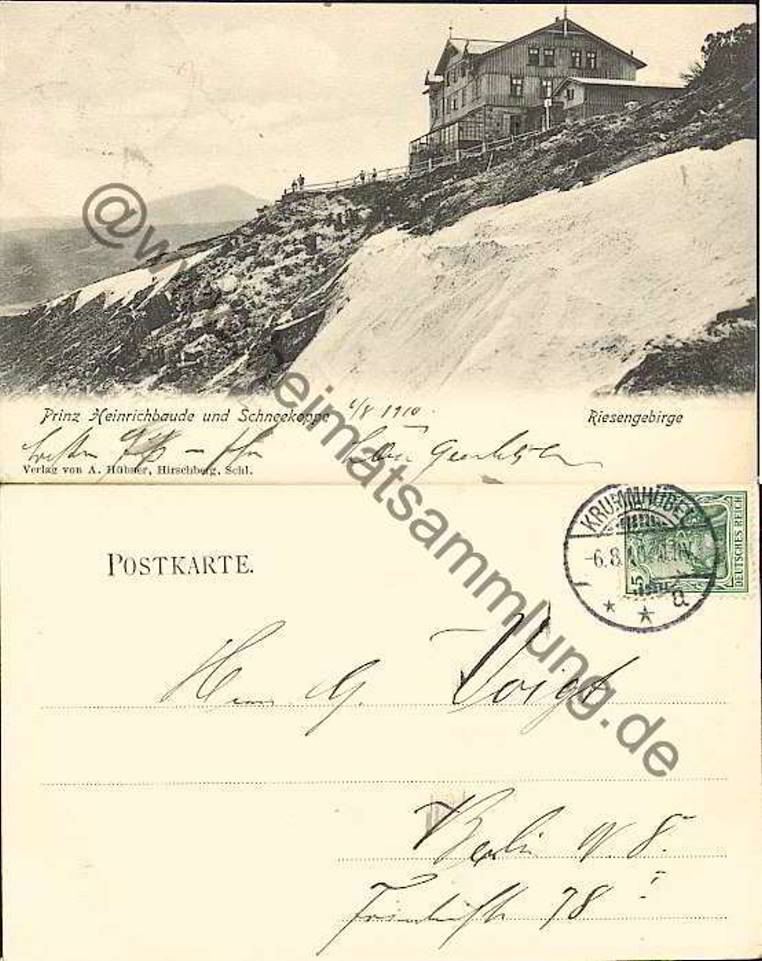 Prinz Heinrichbaude und Schneekoppe 6/8 1910. Riesengebirge
Verlag von A. Hübner, Hirschberg, Schl.
@www.heimatsammlung.de
POSTKARTE.
KRUMMHÜBEL
-6.8.10
a
DEUTSCHES REICH
5
Herrn G. Voigt
Berlin W. 8.
78 I